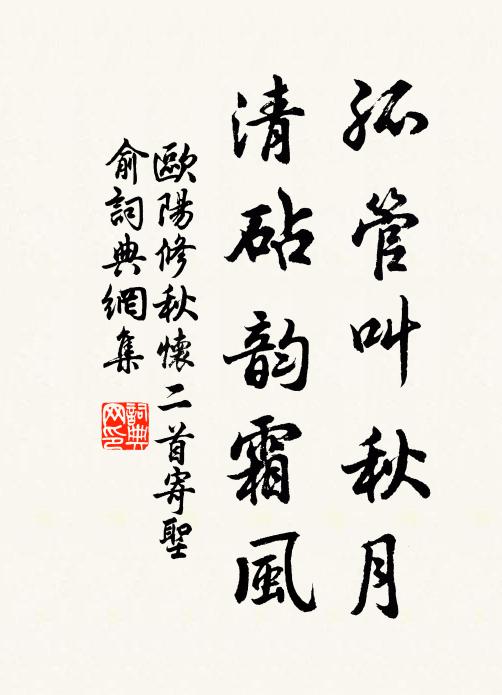 孤管叫秋月
清砧韵霜風
歐陽修秋懷二首寄聖
俞詞典網集
詞典
网印